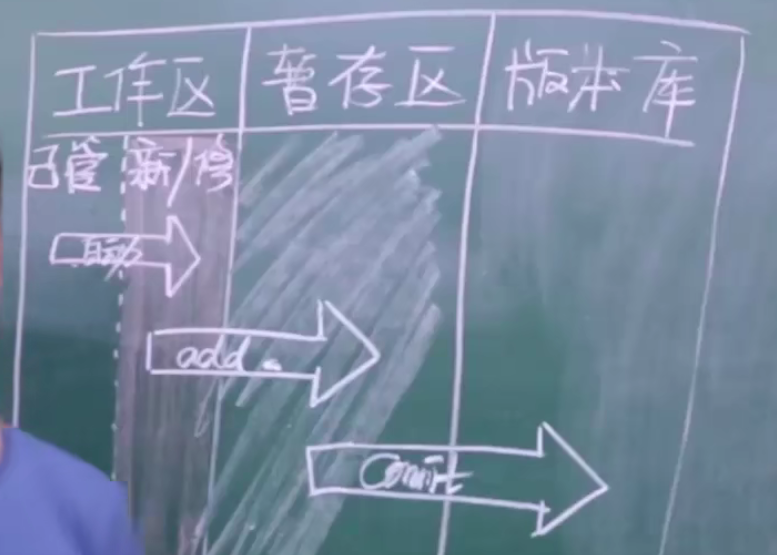 工作区 暂存区 版本库
已管 新/修
自动
add .
Commit